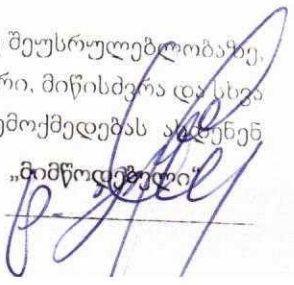 შეუსრულებლობაზე,
რი, მიწისძვრა და სხვა
ემოქმედებას ახდენენ
„მიმწოდებელი“